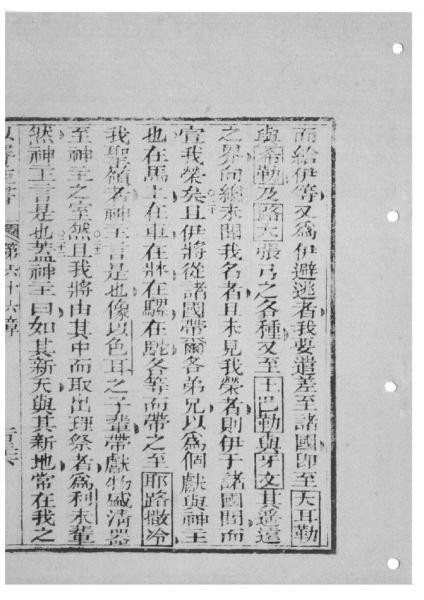 而給伊等又為伊避逃者我要遣差至諸國即至天耳勒
與希勒及路大張弓之各種又至土巴勒與牙文其遙遠
之界向總未聞我名者且未見我榮者則伊于諸國間而
宣我榮矣且伊將從諸國帶爾各弟兄以為個獻與神主
也在馬上在車在牀在騾在駝各等而帶之至耶路撒冷
我聖嶺者神主言是也像以色耳之子輩帶獻物盛清器
至神主之室然且我將由其中而取出理祭者為利未輩
然神主言是也蓋神主曰如其新天與其新地常在我之
第六十六章